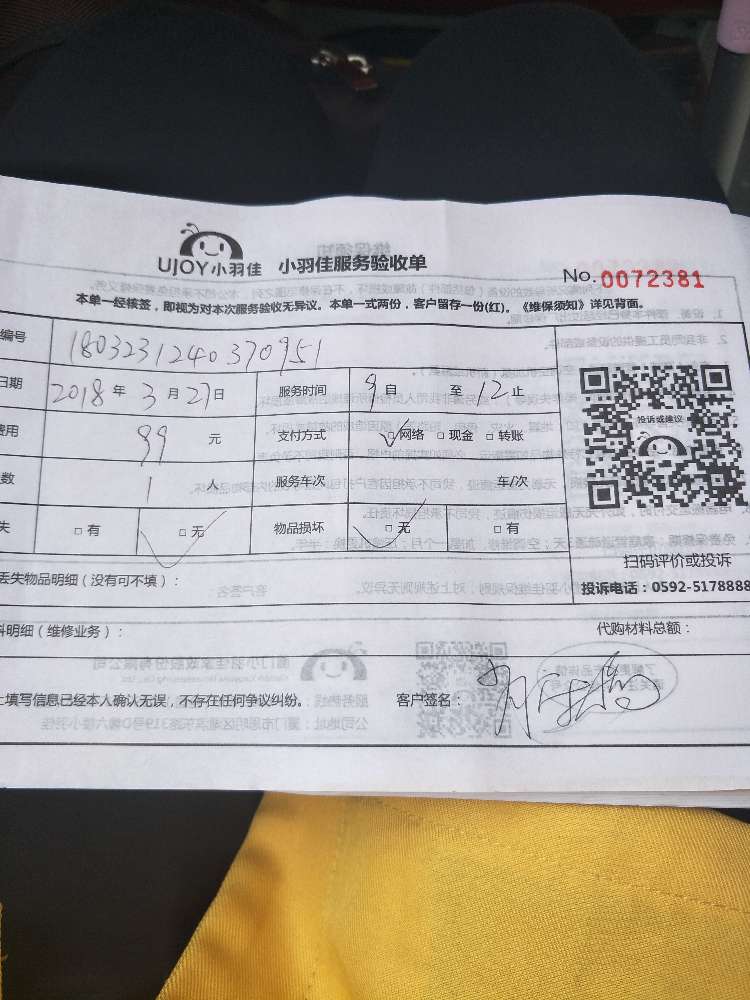 UJOY小羽佳 小羽佳服务验收单
No.0072381
本单一经核签，即视为对本次服务验收无异议。本单一式两份，客户留存一份(红)。《维保须知》详见背面。
编号 1803231240370951
日期 2018 年 3 月 27 日 服务时间 9 自 至 12 止
费用 99 元 支付方式 ☑网络 □现金 □转账
数 1 人 服务车次 车/次
失 □有 ☑无 物品损坏 ☑无 □有
投诉或建议
扫码评价或投诉
投诉电话：0592-5178888
丢失物品明细（没有可不填）：
料明细（维修业务）： 代购材料总额：
上填写信息已经本人确认无误，不存在任何争议纠纷。 客户签名：